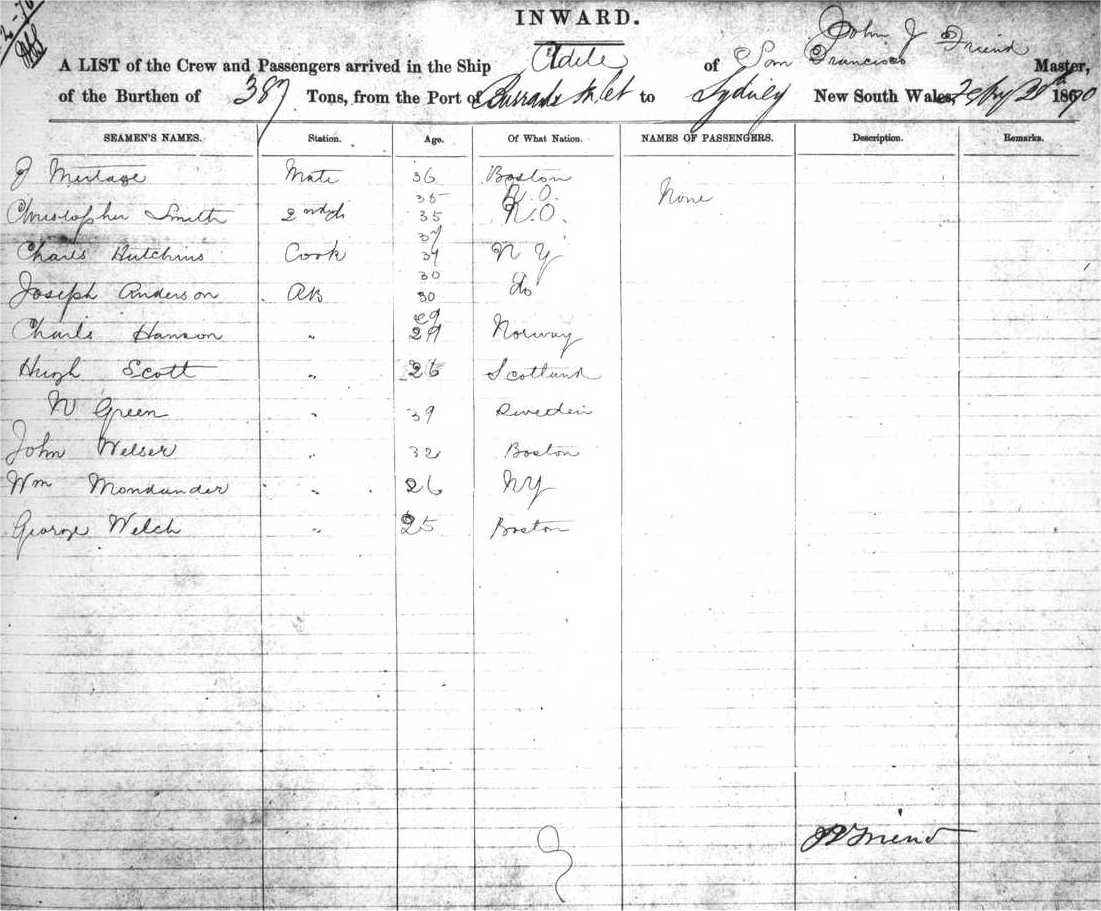 INWARD.
John J Friend
A LIST of the Crew and Passengers arrived in the Ship Adele of San Francisco Master,
of the Burthen of 387 Tons, from the Port of Burrads Inlet to Sydney New South Wales, 1870
SEAMEN'S NAMES. Station. Age. Of What Nation. NAMES OF PASSENGERS. Description. Remarks.
J Mate 36 Boston None
35 N.O.
Christopher Smith 35 N.O.
37
Charls Hutchins Cook N Y
30
Joseph Anderson AB 30 do
29
Charls Hanson " 29 Norway
Hugh Scott " 26 Scotland
W Green " 39 Sweden
John Welser " 32 Boston
Wm " 26 NY
George Welch " 25 Boston
Friend